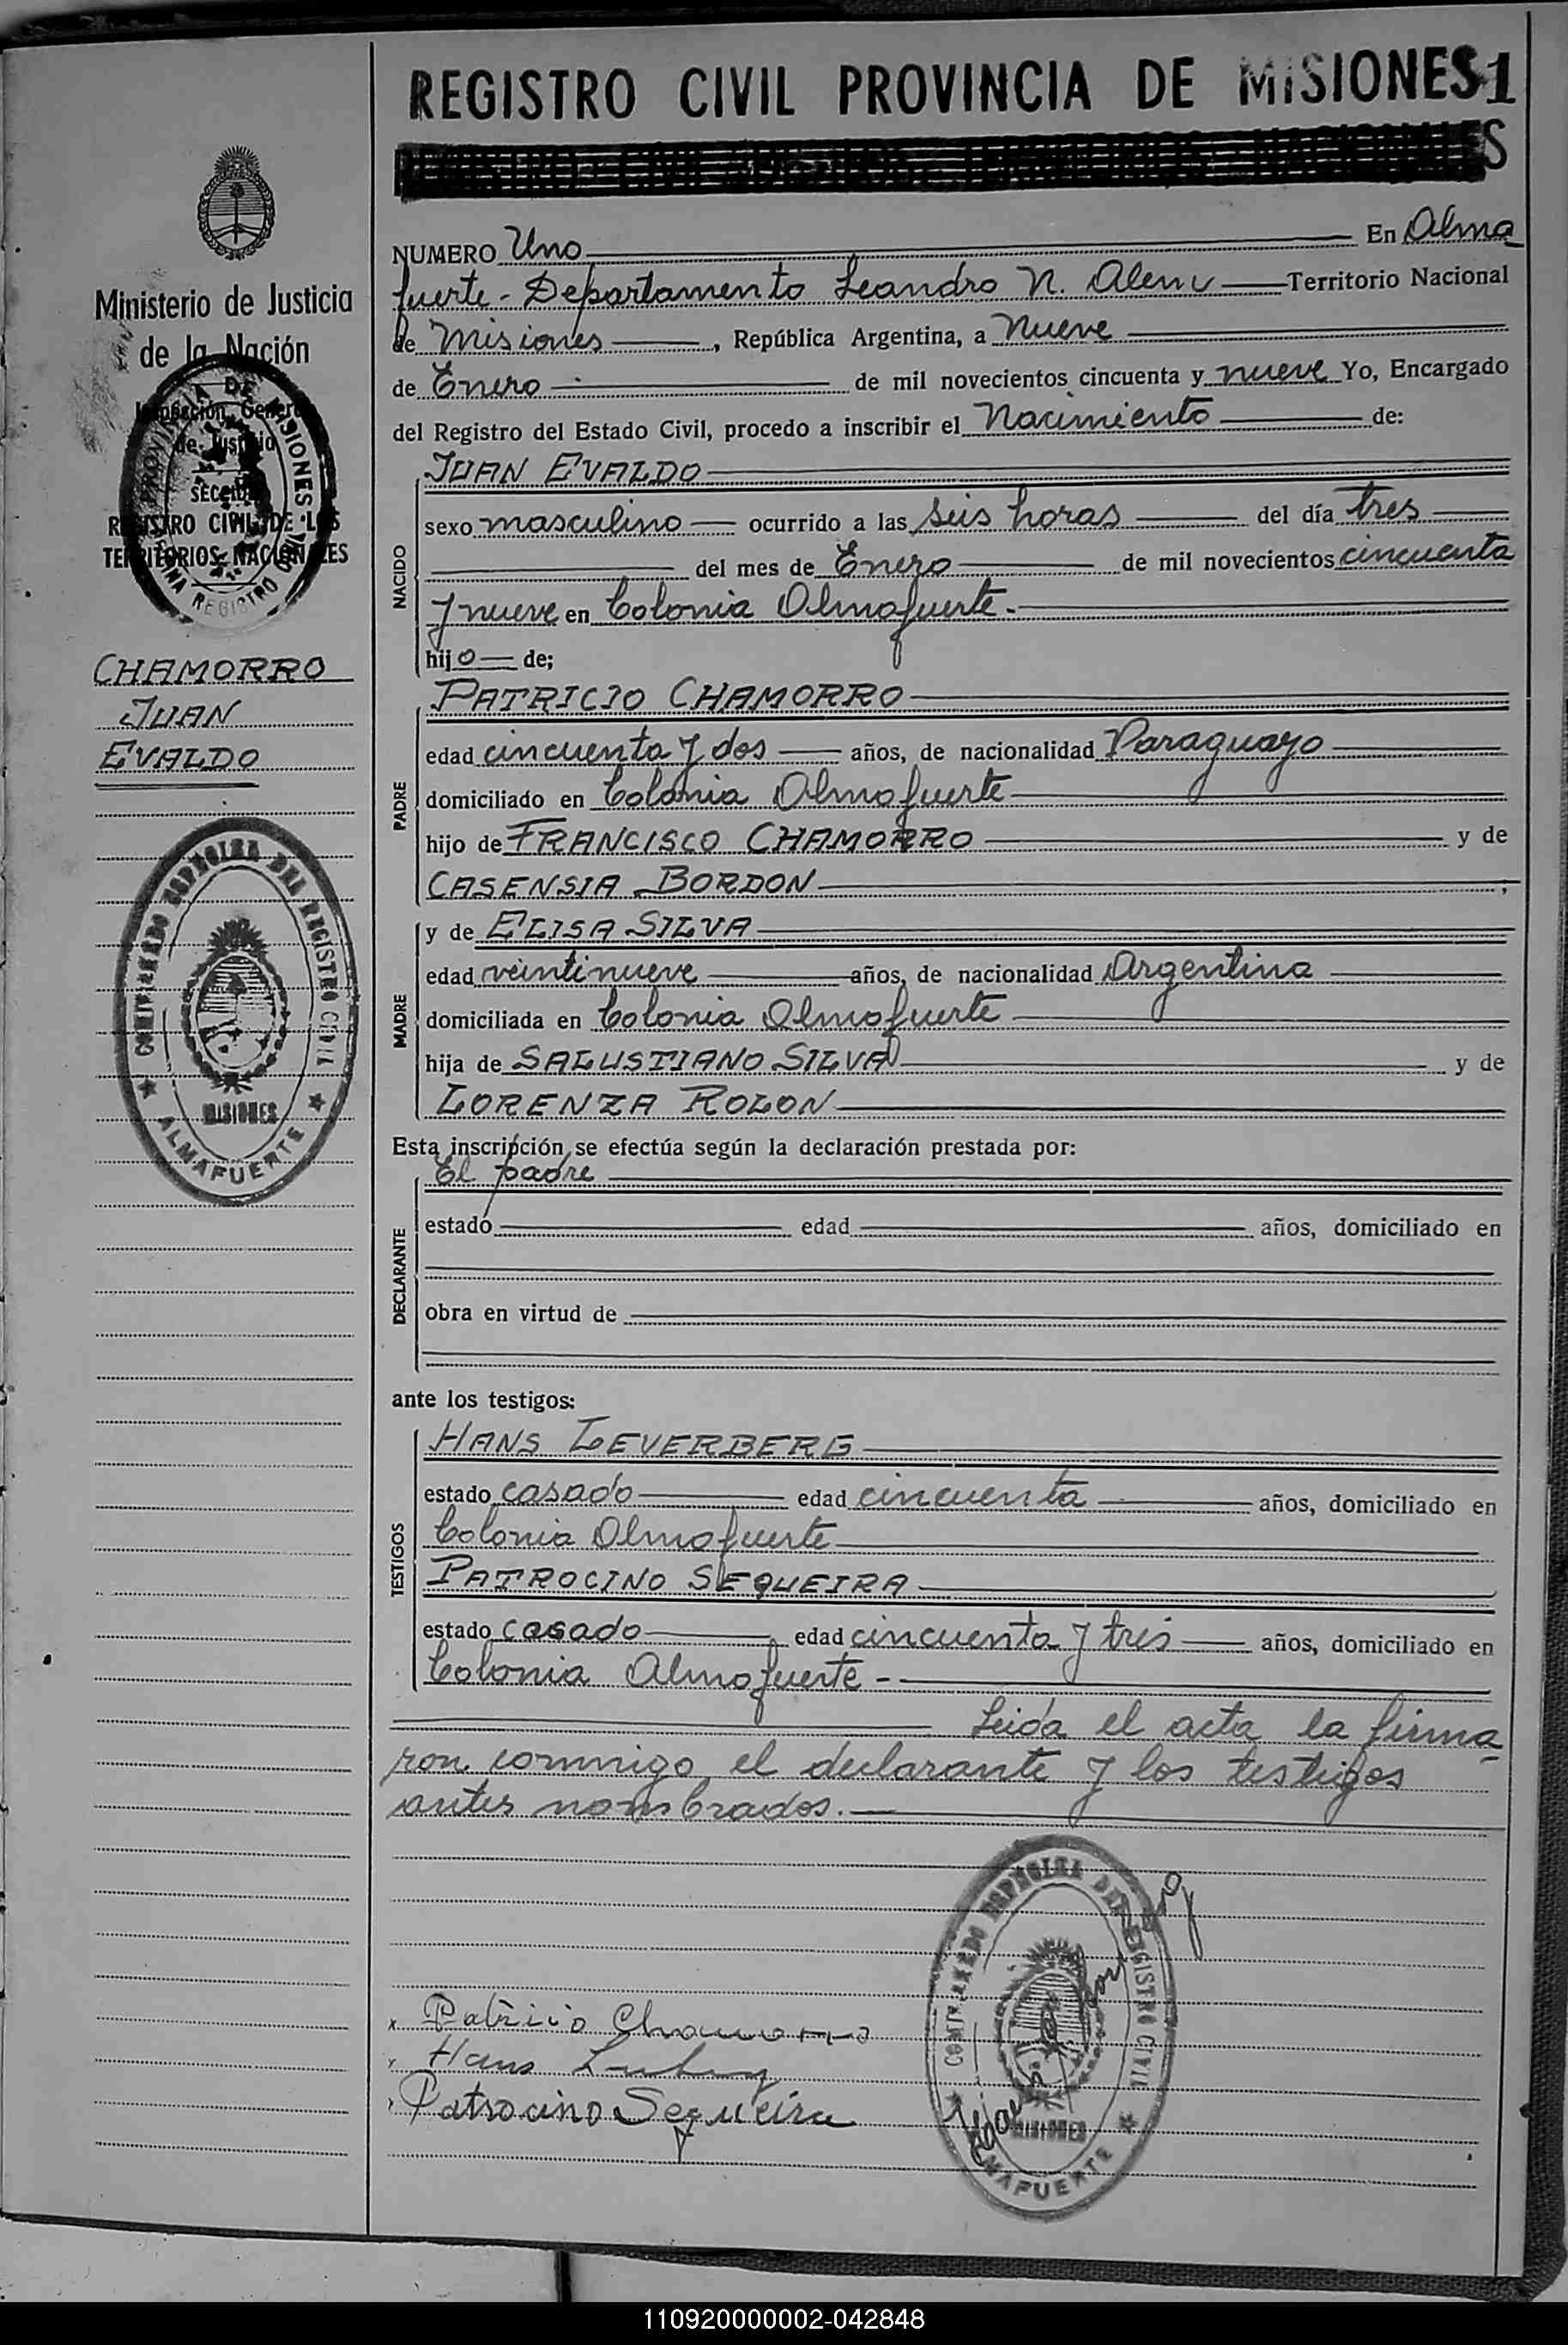 REGISTRO CIVIL PROVINCIA DE MISIONES 1
Ministerio de Justicia
de la Nación
Inspección General
de Justicia
SECCION
REGISTRO CIVIL DE LOS
TERRITORIOS NACIONALES
PROVINCIA DE MISIONES
CHAMORRO
JUAN
EVALDO
COMISARIADO ESPECIAL DEL REGISTRO CIVIL
MISIONES
ALMAFUERTE
NUMERO Uno En Alma
fuerte - Departamento Leandro N. Alem Territorio Nacional
de Misiones, República Argentina, a Nueve
de Enero de mil novecientos cincuenta y nueve Yo, Encargado
del Registro del Estado Civil, procedo a inscribir el Nacimiento de:
NACIDO
JUAN EVALDO
sexo masculino ocurrido a las seis horas del día tres
del mes de Enero de mil novecientos cincuenta
y nueve en Colonia Almafuerte.
hijo de;
PADRE
PATRICIO CHAMORRO
edad cincuenta y dos años, de nacionalidad Paraguayo
domiciliado en Colonia Almafuerte
hijo de FRANCISCO CHAMORRO y de
CASENSIA BORDON,
MADRE
y de ELISA SILVA
edad veintinueve años, de nacionalidad Argentina
domiciliada en Colonia Almafuerte
hija de SALUSTIANO SILVA y de
LORENZA ROLON
Esta inscripción se efectúa según la declaración prestada por:
DECLARANTE
El padre
estado edad años, domiciliado en
obra en virtud de
ante los testigos:
TESTIGOS
HANS LEVERBERG
estado casado edad cincuenta años, domiciliado en
Colonia Almafuerte
PATROCINO SEQUEIRA
estado casado edad cincuenta y tres años, domiciliado en
Colonia Almafuerte -
Leida el acta la firma
ron conmigo el declarante y los testigos
antes nombrados.
x Patricio Chamorro
x Hans
Patrocino Sequeira
COMISARIADO ESPECIAL DEL REGISTRO CIVIL
MISIONES
ALMAFUERTE
110920000002-042848